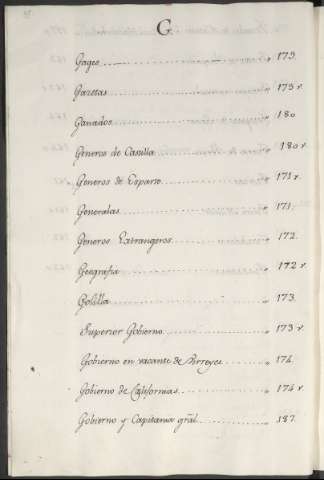 G.
Gages " 179.
Gazetas " 179 v.
Ganados " 180
Generos de Castilla " 180 v.
Generos de Esparto " 171 v.
Generalas " 171.
Generos Extrangeros " 172.
Geografia " 172 v.
Golilla " 173.
Superior Gobierno " 173 v.
Gobierno en vacante de Virreyes " 174.
Gobierno de Californias " 174 v.
Gobierno y Capitania grãl. " 187.